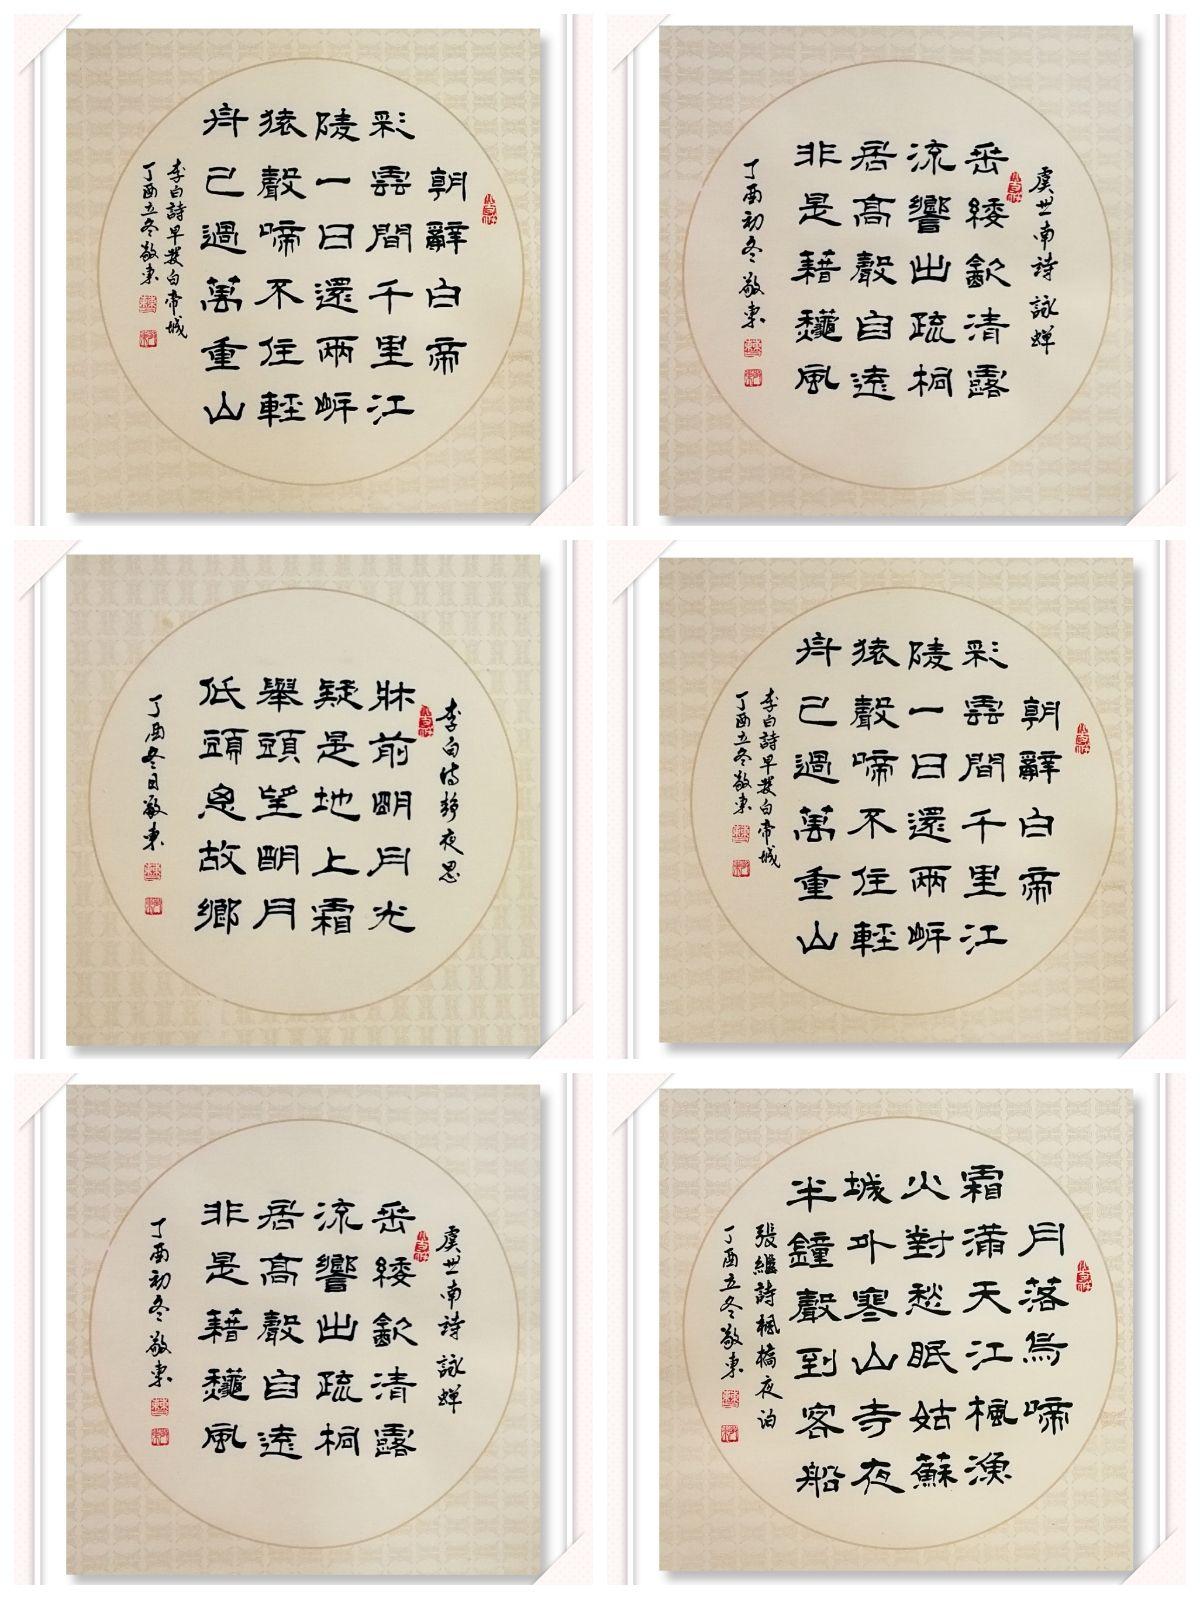 朝辭白帝
彩雲間千里江
陵一日還兩岍
猿聲啼不住輕
舟已過萬重山
李白詩早發白帝城
丁酉立冬敬東
虞世南詩詠蟬
垂緌飲清露
流響出疏桐
居高聲自遠
非是藉秋風
丁酉初冬敬東
李白诗静夜思
牀前明月光
疑是地上霜
舉頭望明月
低頭思故鄉
丁酉冬日敬東
朝辭白帝
彩雲間千里江
陵一日還兩岍
猿聲啼不住輕
舟已過萬重山
李白詩早發白帝城
丁酉立冬敬東
虞世南詩詠蟬
垂緌飲清露
流響出疏桐
居高聲自遠
非是藉秋風
丁酉初冬敬東
月落烏啼
霜滿天江楓漁
火對愁眠姑蘇
城外寒山寺夜
半鐘聲到客船
張繼詩楓橋夜泊
丁酉立冬敬東